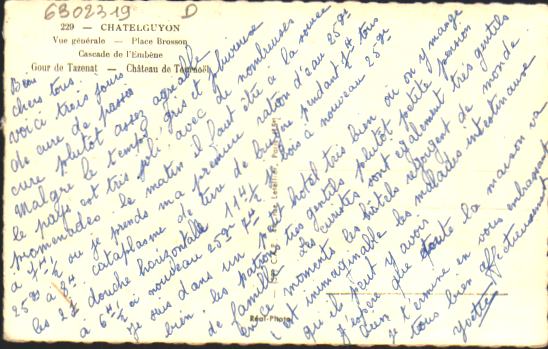 6802319 D
229 — CHATELGUYON
Vue générale — Place Brosson
Cascade de l'Embène
Gour de Tazenat — Château de Tournoël
Bien
chers tous
voici trois jours
de cure de passés
cure plutôt assez agréable
Malgré le temps gris et pluvieux
le pays est très joli avec de nombreuses
promenades le matin il faut être à la source
à 7h½ où je prends ma première ration d'eau 25gr
25gr à 8h cataplasme de tire de bruyère pendant ¾ tous
les 2j douche horizontale 11h½ bois à nouveau 25gr
à 6h½ à nouveau 25gr
je suis dans un petit hotel très bien où on y mange
bien. les patrons très gentils plutôt petite pension
de famille des curistes sont également très gentils
en moments les hôtels regorgent de monde
c'est inimaginable les malades intestinaux
qu'il peut y avoir.
J'espère que toute la maison va
bien je termine en vous embrassant
tous bien affectueusement
Yvette
Réal-Photo